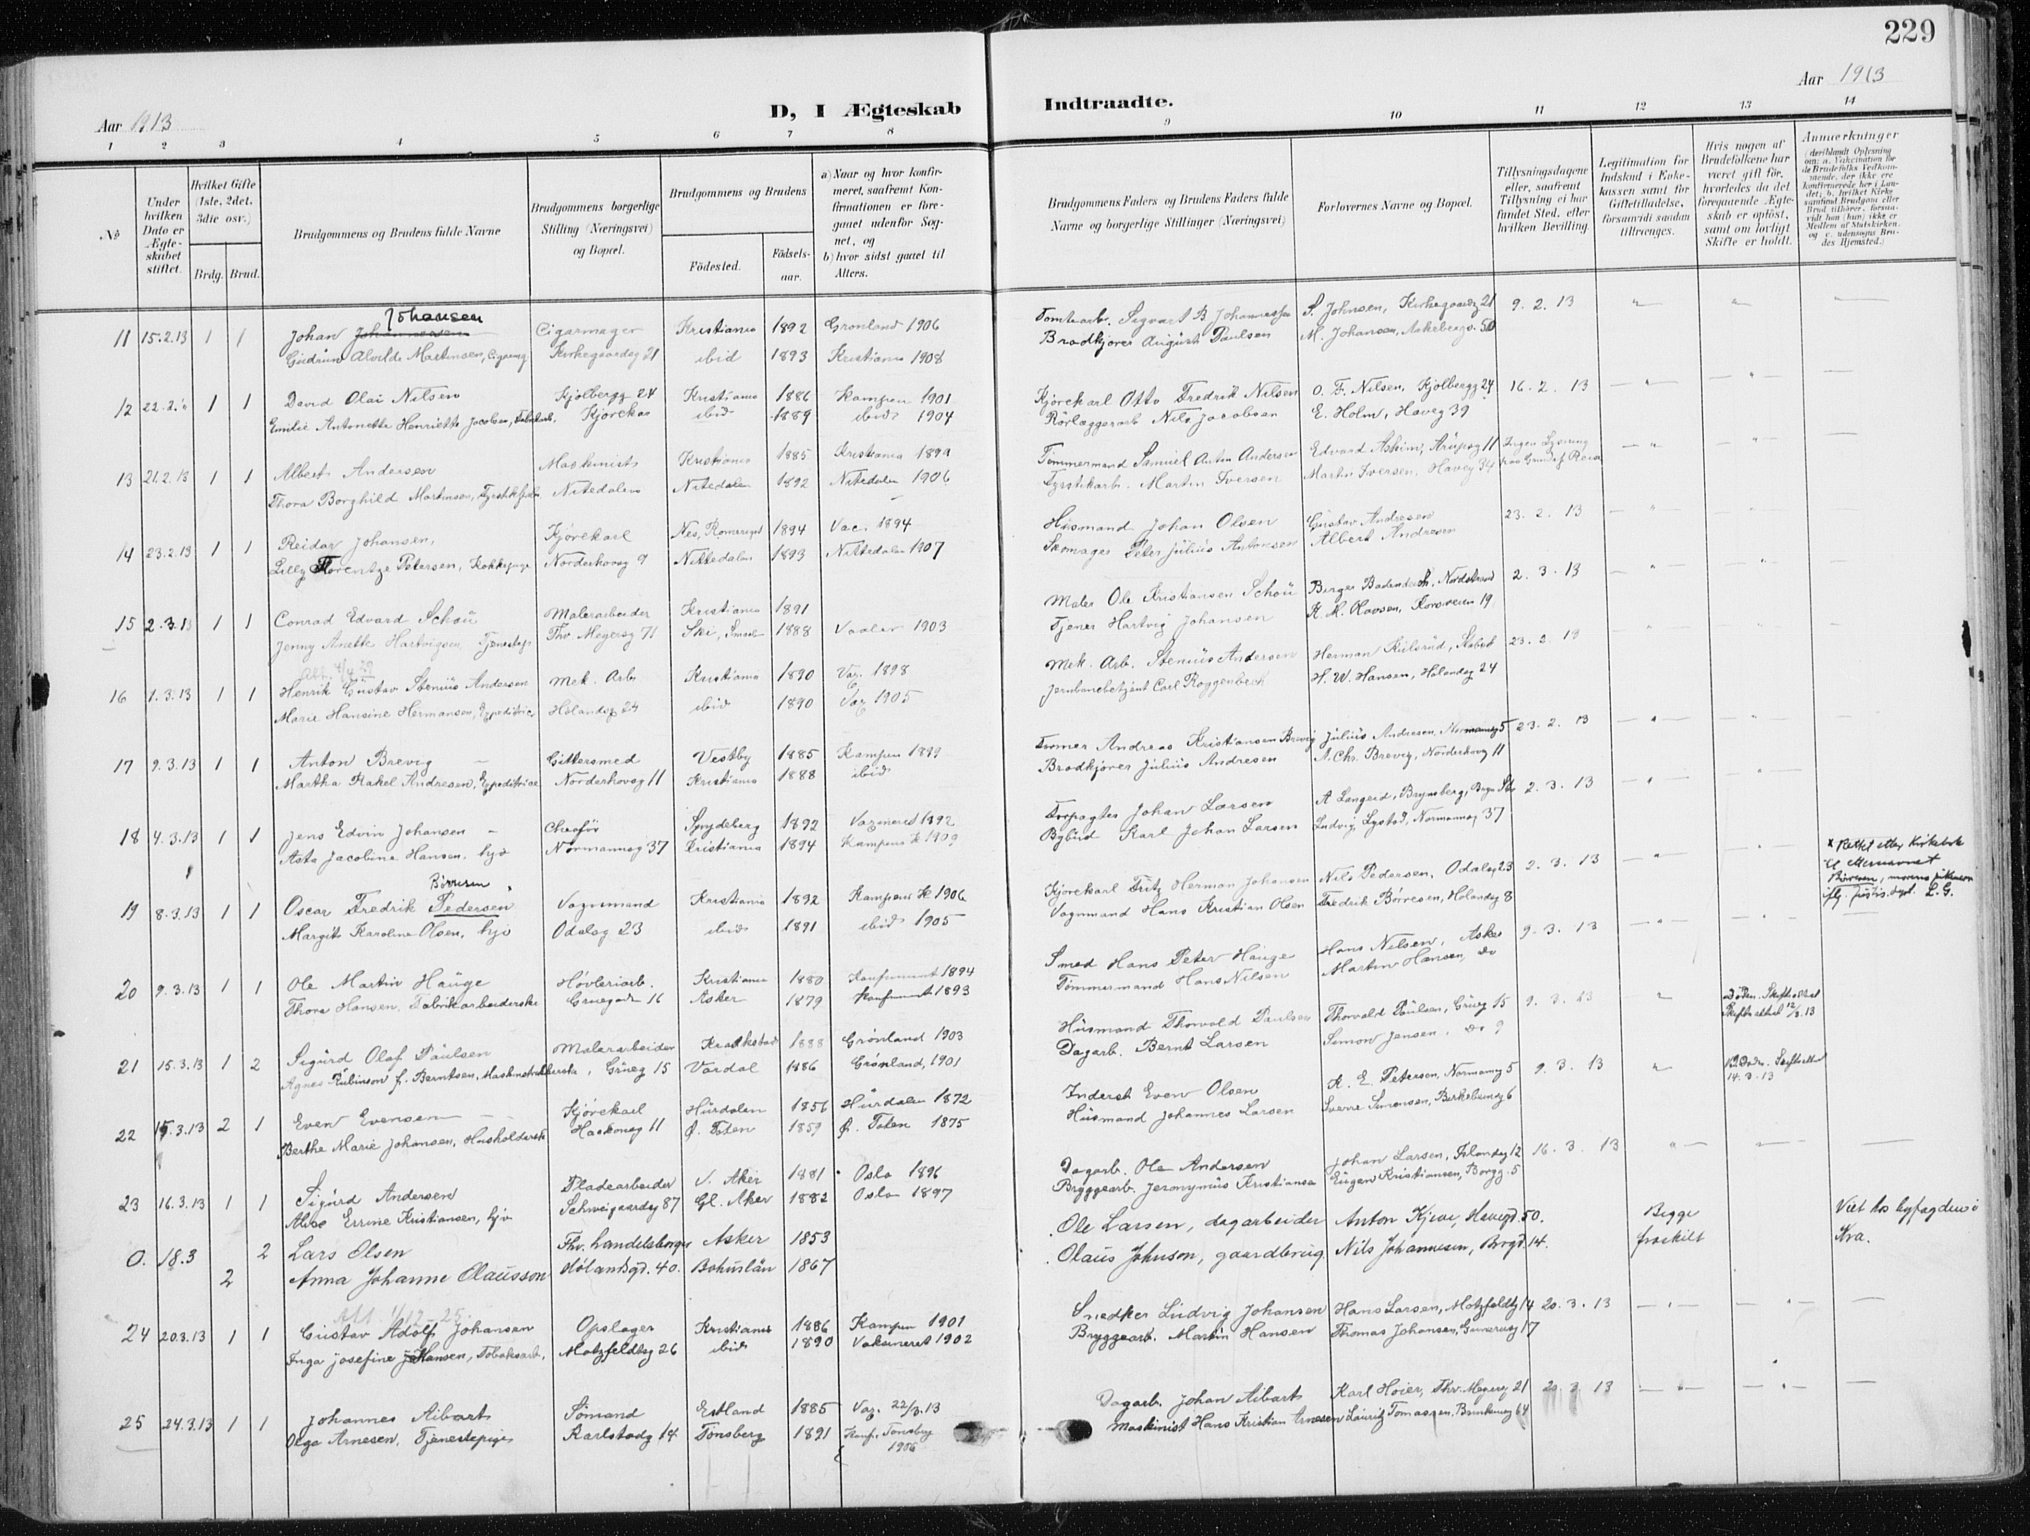 229
Aar 1913
Aar 1913
D, I Ægteskab Indtraadte.
1 2 3 4 5 6 7 8 9 10 11 12 13 14
No.
Under hvilken Dato er Ægteskabet stiftet.
Hvilket Gifte (1ste, 2det, 3die osv.)
Brdg. Brud.
Brudgommens og Brudens fulde Navne
Brudgommens borgerlige Stilling (Næringsvei) og Bopæl.
Brudgommens og Brudens
Fødested. Fødselsaar.
a) Naar og hvor konfirmeret, saafremt Konfirmationen er foregaaet udenfor Sognet, og
b) hvor sidst gaaet til Alters.
Brudgommens Faders og Brudens Faders fulde Navne og borgerlige Stillinger (Næringsvei)
Forlovernes Navne og Bopæl.
Tillysningsdagene eller, saafremt Tillysning ei har fundet Sted, efter hvilken Bevilling.
Legitimation for Indskud i Enkekassen samt for Giftetilladelse, forsaavidt saadan tiltrænges.
Hvis nogen af Brudefolkene har været gift før, hvorledes da det foregaaende Ægteskab er opløst, samt om lovligt Skifte er holdt.
Anmærkninger
(deriblandt Oplysning om: a. Vakcination for de Brudefolks Vedkommende, der ikke ere konfirmerede her i Landet; b. hvilket Kirkesamfund Brudgom eller Brud tilhører, forsaavidt han (hun) ikke er Medlem af Statskirken, og c. udensogns Brudes Hjemsted.)
Johansen
11 15.2.13 1 1 Johan Johannessen Cigarmager Kristiania 1892 Grønland 1906 Tomtearb. Sigvart B Johannessen S. Johnsen, Kirkegaardg 21 9. 2. 13
Gudrun Alvilde Martinsen, Cigarmg Kirkegaardsg 21 ibid 1893 Kristiania 1908 Brødkjører August Paulsen M. Johansen, Aakebergv. 50
12 22.2. 1 1 David Olai Nilsen Kjølbergg 24 Kristiania 1886 Kampen 1901 Kjørekarl Otto Fredrik Nilsen O. F. Nilsen, Kjølbergg 24 16. 2. 13
Emilie Antonette Henriette Jacobsen, Fabrikarb. Kjørekar ibid 1889 ibid 1904 Rørlæggerarb Nils Jacobsen E. Holm, Haveg 39
13 21.2.13 1 1 Albert Andersen Maskinist Kristiania 1885 Kristiania 1899 Tømmermand Samuel Anton Andersen Edvard Askim, Arupsg 11 Ingen Lysning
Thora Borghild Martinsen, Nitedalen Nitedalen 1892 Nitedalen 1906 Fyrstikarb. Martin Iversen Martin Iversen, Haveg 34 paa Grund af Reise
14 23.2.13 1 1 Reidar Johansen, Kjørekarl Nes, Romerige 1894 Vac. 1894 Husmand Johan Olsen Gustav Andresen 23. 2. 13
Lilly Florentze Petersen, Kokkepige Norderhovsg 9 Nittedalen 1893 Nittedalen 1907 Skomager Peter Julius Antonsen Albert Andresen
15 2.3.13 1 1 Conrad Edvard Schou Malerarbeider Kristiania 1891 Maler Ole Kristiansen Schou Birger, Nordstrand 2. 3. 13
Jenny Anette Hartvigsen, Tjenestepi Thv Meyersg 71 Ski, 1888 Vaaler 1903 Tjener Hartvig Johansen K. M. Olavsen, Korsveien 19
16 1.3.13 1 1 Henrik Gustav Stenius Andersen Mek. Arb Kristiania 1890 Vac. 1898 Mek. Arb. Stenius Andersen Herman Kulsrud, Stabek 23. 2. 13
Marie Hansine Hermansen, Expeditrice Hølandsg 24 ibid 1890 Vac 1905 Jernbanebetjent Carl Roggenbeck H. W. Hansen, Hølandsg 24
17 9.3.13 1 1 Anton Brevig Gittersmed Vestby 1885 Kampen 1899 Tomer Andreas Kristiansen Brevig Julius Andresen, Normannsg 5 23. 2. 13
Martha Rakel Andresen, Expeditrice Norderhovsg 11 Kristiania 1888 ibid Brødkjører Julius Andresen A. Chr. Brevig, Norderhovsg 11
18 4.3.13 1 1 Jens Edvin Johansen Chaufør Spydeberg 1892 Vaxineret 1892 Forpagter Johan Larsen A Langeid, Brynsberg, Bryn St 2. 3. 13
Asta Jacobine Hansen, hjv Normannsg 37 Kristiania 1894 Kampens K 1909 Bybud Karl Johan Larsen Ludvig Lystad, Normannsg 37
Børresen
19 8.3.13 1 1 Oscar Fredrik Pedersen Vognmand Kristiania 1892 Kampens K 1906 Kjørekarl Fritz Herman Johansen Nils Pedersen, Odalsg 23 2. 3. 13
Margit Karoline Olsen, hjv Odalsg 23 ibid 1891 ibid 1905 Vognmand Hans Kristian Olsen Fredrik Børresen, Hølandsg 8
× Rettet efter Kirkebok
efternavnet
Børresen, morens pikenavn
iflg. justis.dept. L.G.
20 9.3.13 1 1 Ole Martin Hauge Høvleriarb. Kristiania 1880 Konfirmeret 1894 Smed Hans Peter Hauge Hans Nilsen, Asker 9. 3. 13
Thora Hansen, Fabrikarbeiderske Gruegade 16 Asker 1879 Konfirmeret 1893 Tømmermand Hans Nilsen Martin Hansen, do
21 15.3.13 1 2 Sigurd Olaf Paulsen Malerarbeider Kraakstad 1888 Grønland 1903 Husmand Thorvald Paulsen Thorvald Paulsen, Grueg 15 9. 3. 13 Døden. Skifte
Skifteattest 12/3.13
Agnes Rubinson f. Berntsen, Grueg 15 Vardal 1886 Grønland, 1901 Dagarb. Bernt Larsen Simon Jensen, do 9
22 15.3.13 2 1 Even Evensen Kjørekarl Hurdalen 1856 Hurdalen 1872 Inderst Even Olsen K. E. Petersen, Normansg 5 9. 3. 13 Døden. Skifteatt
14.3.13
Berthe Marie Johansen, Husholderske Haakonsg 11 Ø. Toten 1859 Ø. Toten 1875 Husmand Johannes Larsen Sverre Simensen, Birkelunsg 6
23 16.3.13 1 1 Sigurd Andersen Pladearbeider V. Aker 1881 Oslo 1896 Dagarb. Ole Andersen Johan Larsen, Islandsg 12 16. 3. 13
Kristiansen, hjv Schweigaardsg 87 Gl. Aker 1882 Oslo 1897 Bryggearb. Jeronymus Kristiansen Eugen Kristiansen, Borgg. 5
0. 18.3 2 Lars Olsen Fhv. landelsborger Asker 1853 Ole Larsen, dagarbeider Anton Kjær, Havegd 50. Begge Viet hos byfogden i
2 Anna Johanne Olausson Hølandsgd. 40. Bohuslän 1867 Olaus Johnson, gaardbrug Nils Johannesen, Borgd 14. fraskilt Kra.
24 20.3.13 1 1 Gustav Adolf Johansen Opslager Kristiania 1886 Kampen 1901 Snedker Ludvig Johansen Hans Larsen, Motzfeldtsg 14 20. 3. 13
Inga Josefine Hansen, Tobaksarb. Motzfeldtsg 26 ibid 1890 Vaksineret 1902 Bryggearb. Martin Hansen Thomas Johansen, Gunerusg 17
25 24.3.13 1 1 Johannes Aibart Sømand Estland 1885 Vax. 22/3.13 Dagarb. Johan Aibart Karl Høier, Thv. Meyersg 21 20. 3. 13
Olga Arnesen, Tjenestepige Karlstadg 14 Tønsberg 1891 Konf. Tønsberg 1906 Maskinist Hans Kristian Arnesen Lauritz Tomassen, Brinkenvg 64